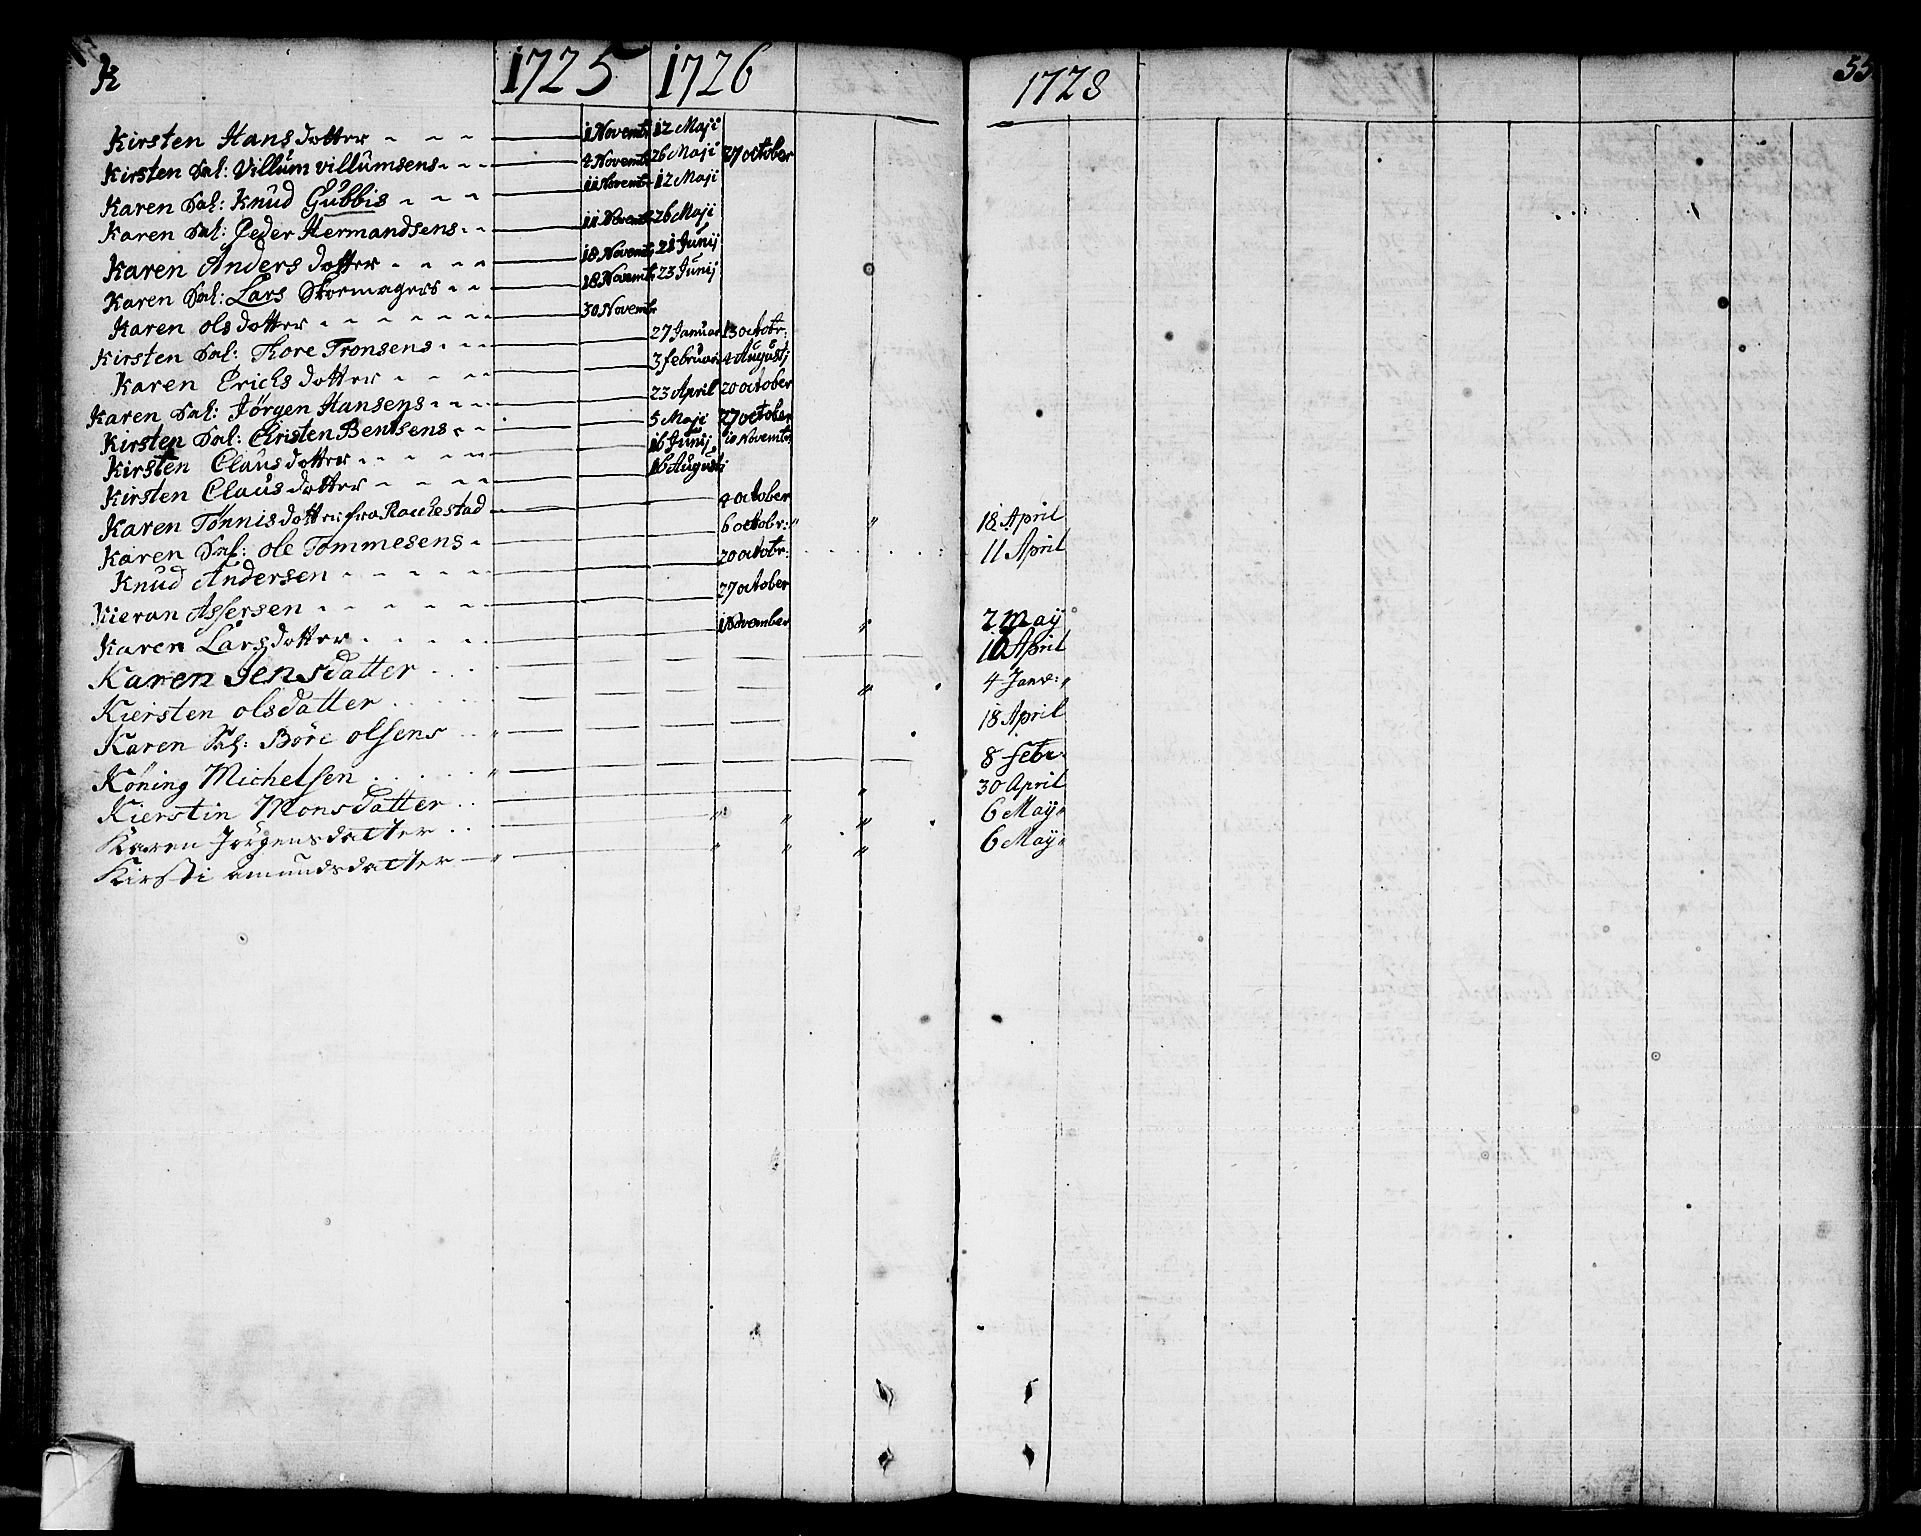 K 1725 1726 1728 55
Kirsten Hansdotter - - - 11 Novemb 12 Maji
Kirsten Sal: Villum villumsens - - - 4 Novemb 26 Maji 27 october
Karen Sal: Knud Gubbis - - - 11 Novemb 12 Maji
Karen Sal: Peder Hermandsens - - 11 Novemb 26 Maji
Karen Anders dotter - - - - 18 Novemb 21 Junij
Karen Sal: Lars Skormagers - - 18 Novemb 23 Junij
Karen olsdotter - - - - - - 30 Novemb
Kirsten Sal: Thore Tronsens - - - 27 Januar 13 octobr:
Karen Erichs dotter - - - - 3 februar 4 Augustj
Karen Sal: Jörgen Hansens - - - 23 April 20 october
Kirsten Sal: Christen Bentsens - - 5 Maji 27 october
Kirsten Clausdotter - - - - 16 Junij 10 Novemb
Kirsten Claus dotter - - - - 16 Augustj
Karen Tönnisdotter fra Rachestad - 4 october
Karen Sal: ole Tommesens - 6 octobr: " " 18 April
Knud Andersen - - - - - 20 octobr: 11 April
Kieran Assersen - - - - - 27 october
Karen Larsdotter - - - - 1 November " 2 May
Karen Jensdatter . . . 10 April
Kiersten olsdatter . . . . " 4 Janv:"
Karen Sal: Böre olsens . . " 18 April
Köning Michelsen . . . . . " 8 febr.
Kierstin Monsdatter . . " 30 April
Karen Jörgensdatter . . " " " 6 May"
Kirsti amundsdatter — " " " " 6 May"